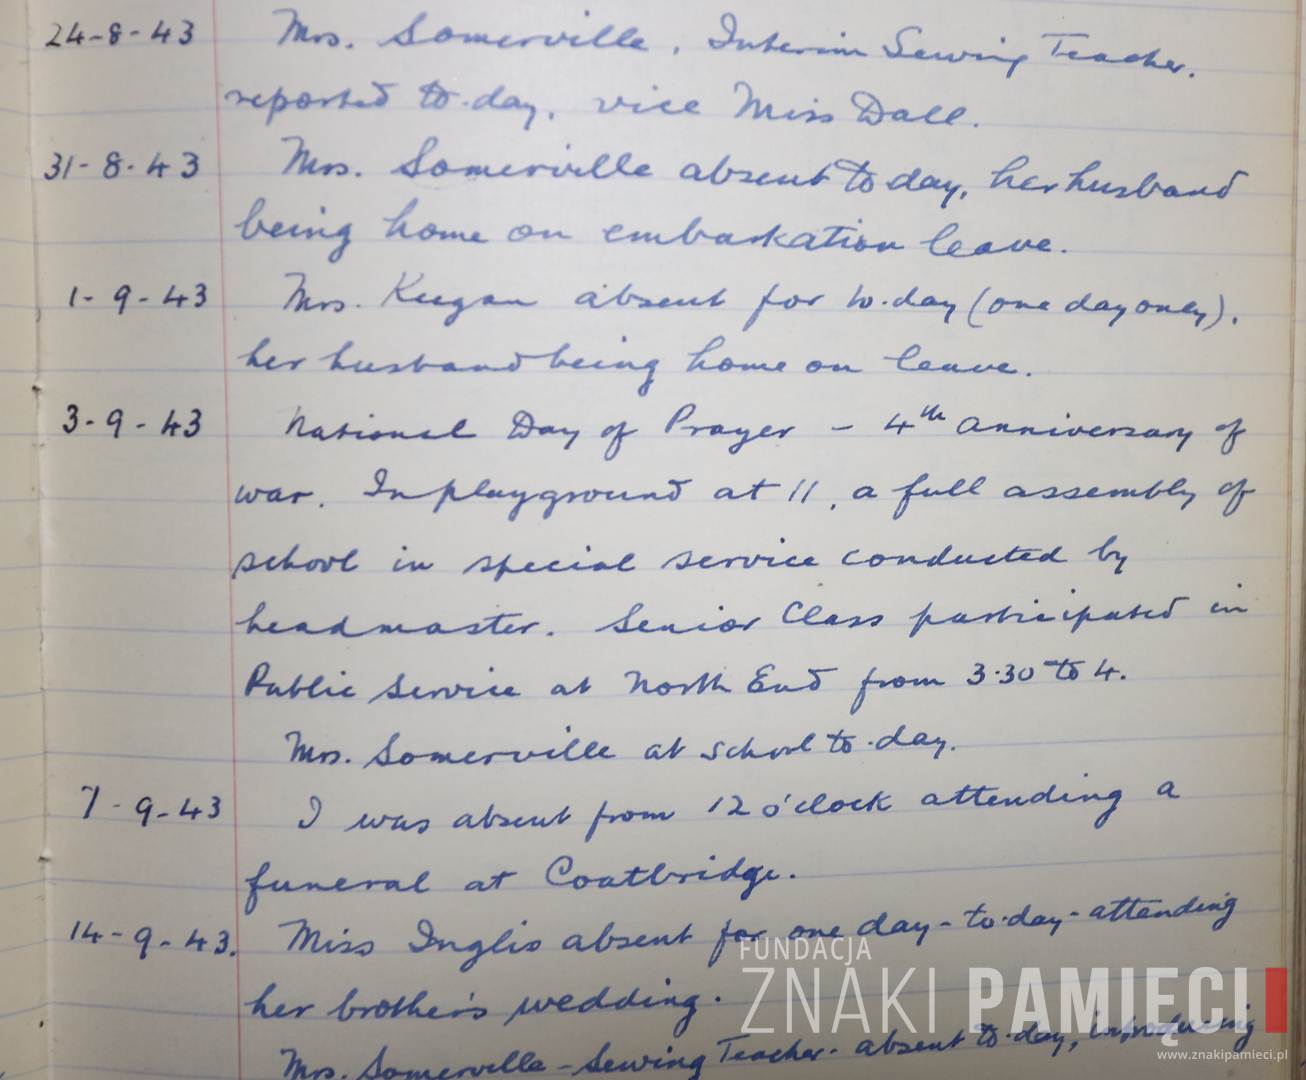 24-8-43 Mrs. Somerville, Interim Sewing Teacher.
reported to-day, vice Miss Dall.
31-8-43 Mrs. Somerville absent to day, her husband
being home on embarkation leave.
1-9-43 Mrs. Keegan absent for to-day (one day only).
her husband being home on leave.
3-9-43 National Day of Prayer - 4th anniversary of
war. In playground at 11, a full assembly of
school in special service conducted by
headmaster. Senior Class participated in
Public Service at North End from 3.30 to 4.
Mrs. Somerville at school to-day.
7-9-43 I was absent from 12 o'clock attending a
funeral at Coatbridge.
14-9-43. Miss Inglis absent for one day - to-day - attending
her brother's wedding.
Mrs. Somerville - Sewing Teacher - absent to-day, introducing
FUNDACJA
ZNAKI PAMIĘCI
www.znakipamieci.pl